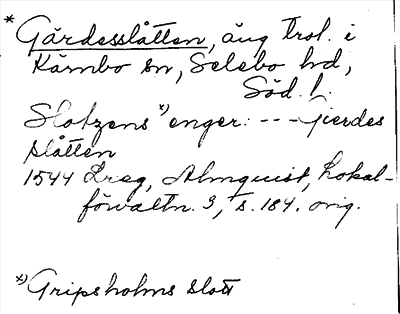 * Gärdesslåtten, äng trol. i
Kärnbo sn, Selebo hd,
Söd. l.
Slotzens x) enger: --- gierdes
slåtten
1544 Lreg, Almquist, Lokal-
förvaltn. 3, s. 184. orig.
x) Gripsholms slott